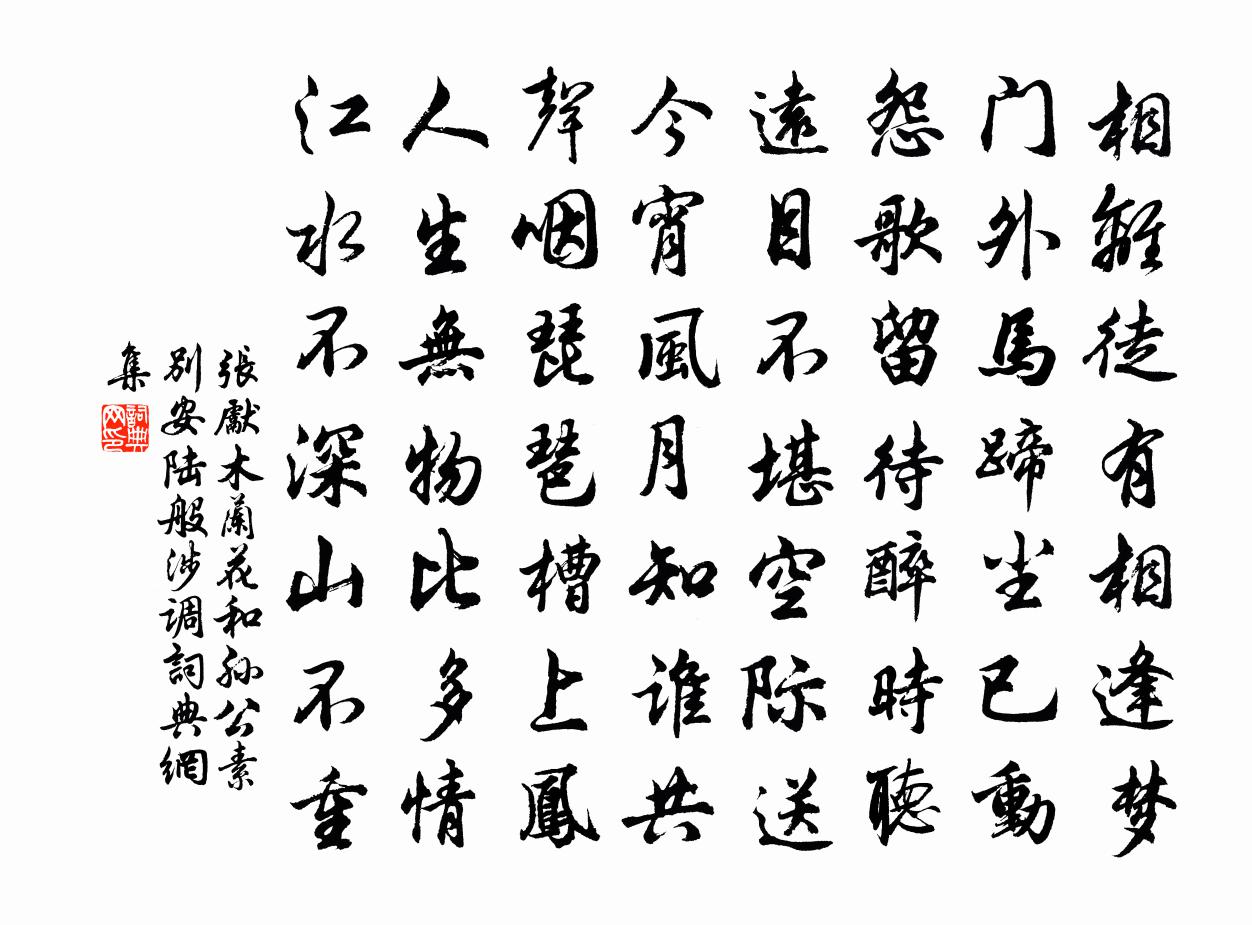 相離徒有相逢梦
门外馬蹄尘已動
怨歌留待醉時聽
遠目不堪空际送
今宵風月知誰共
聲咽琵琶槽上鳳
人生無物比多情
江水不深山不重
張獻木蘭花和孙公素
别安陆般涉调詞典網
集
詞典
网印